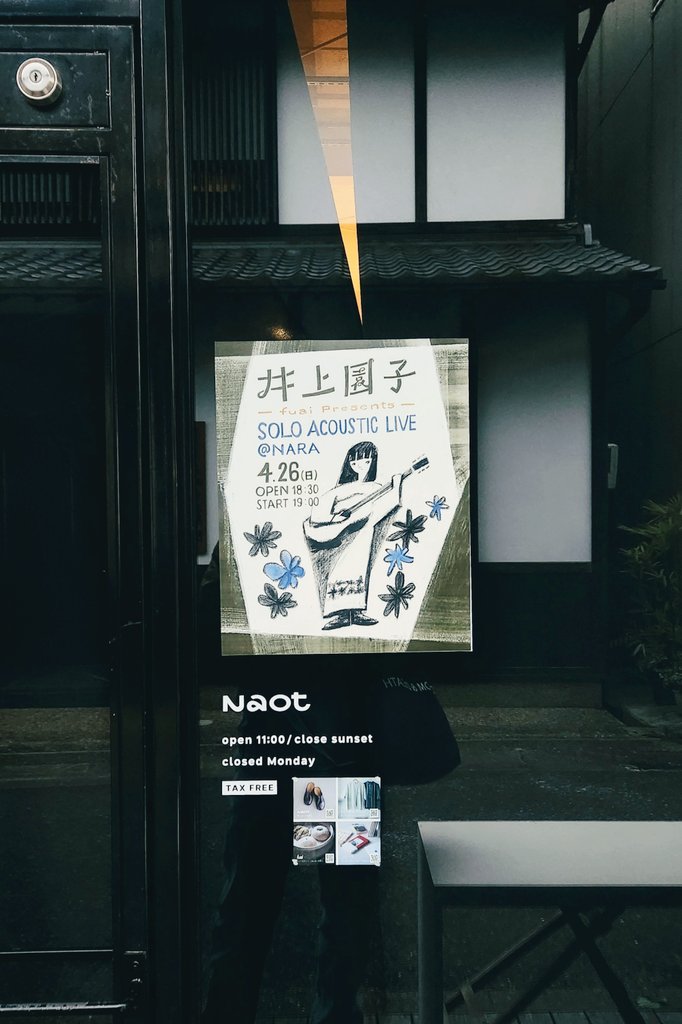 井上園子
— fuai Presents —
SOLO ACOUSTIC LIVE
@NARA
4.26(日)
OPEN 18:30
START 19:00
Naot
open 11:00/close sunset
closed Monday
TAX FREE